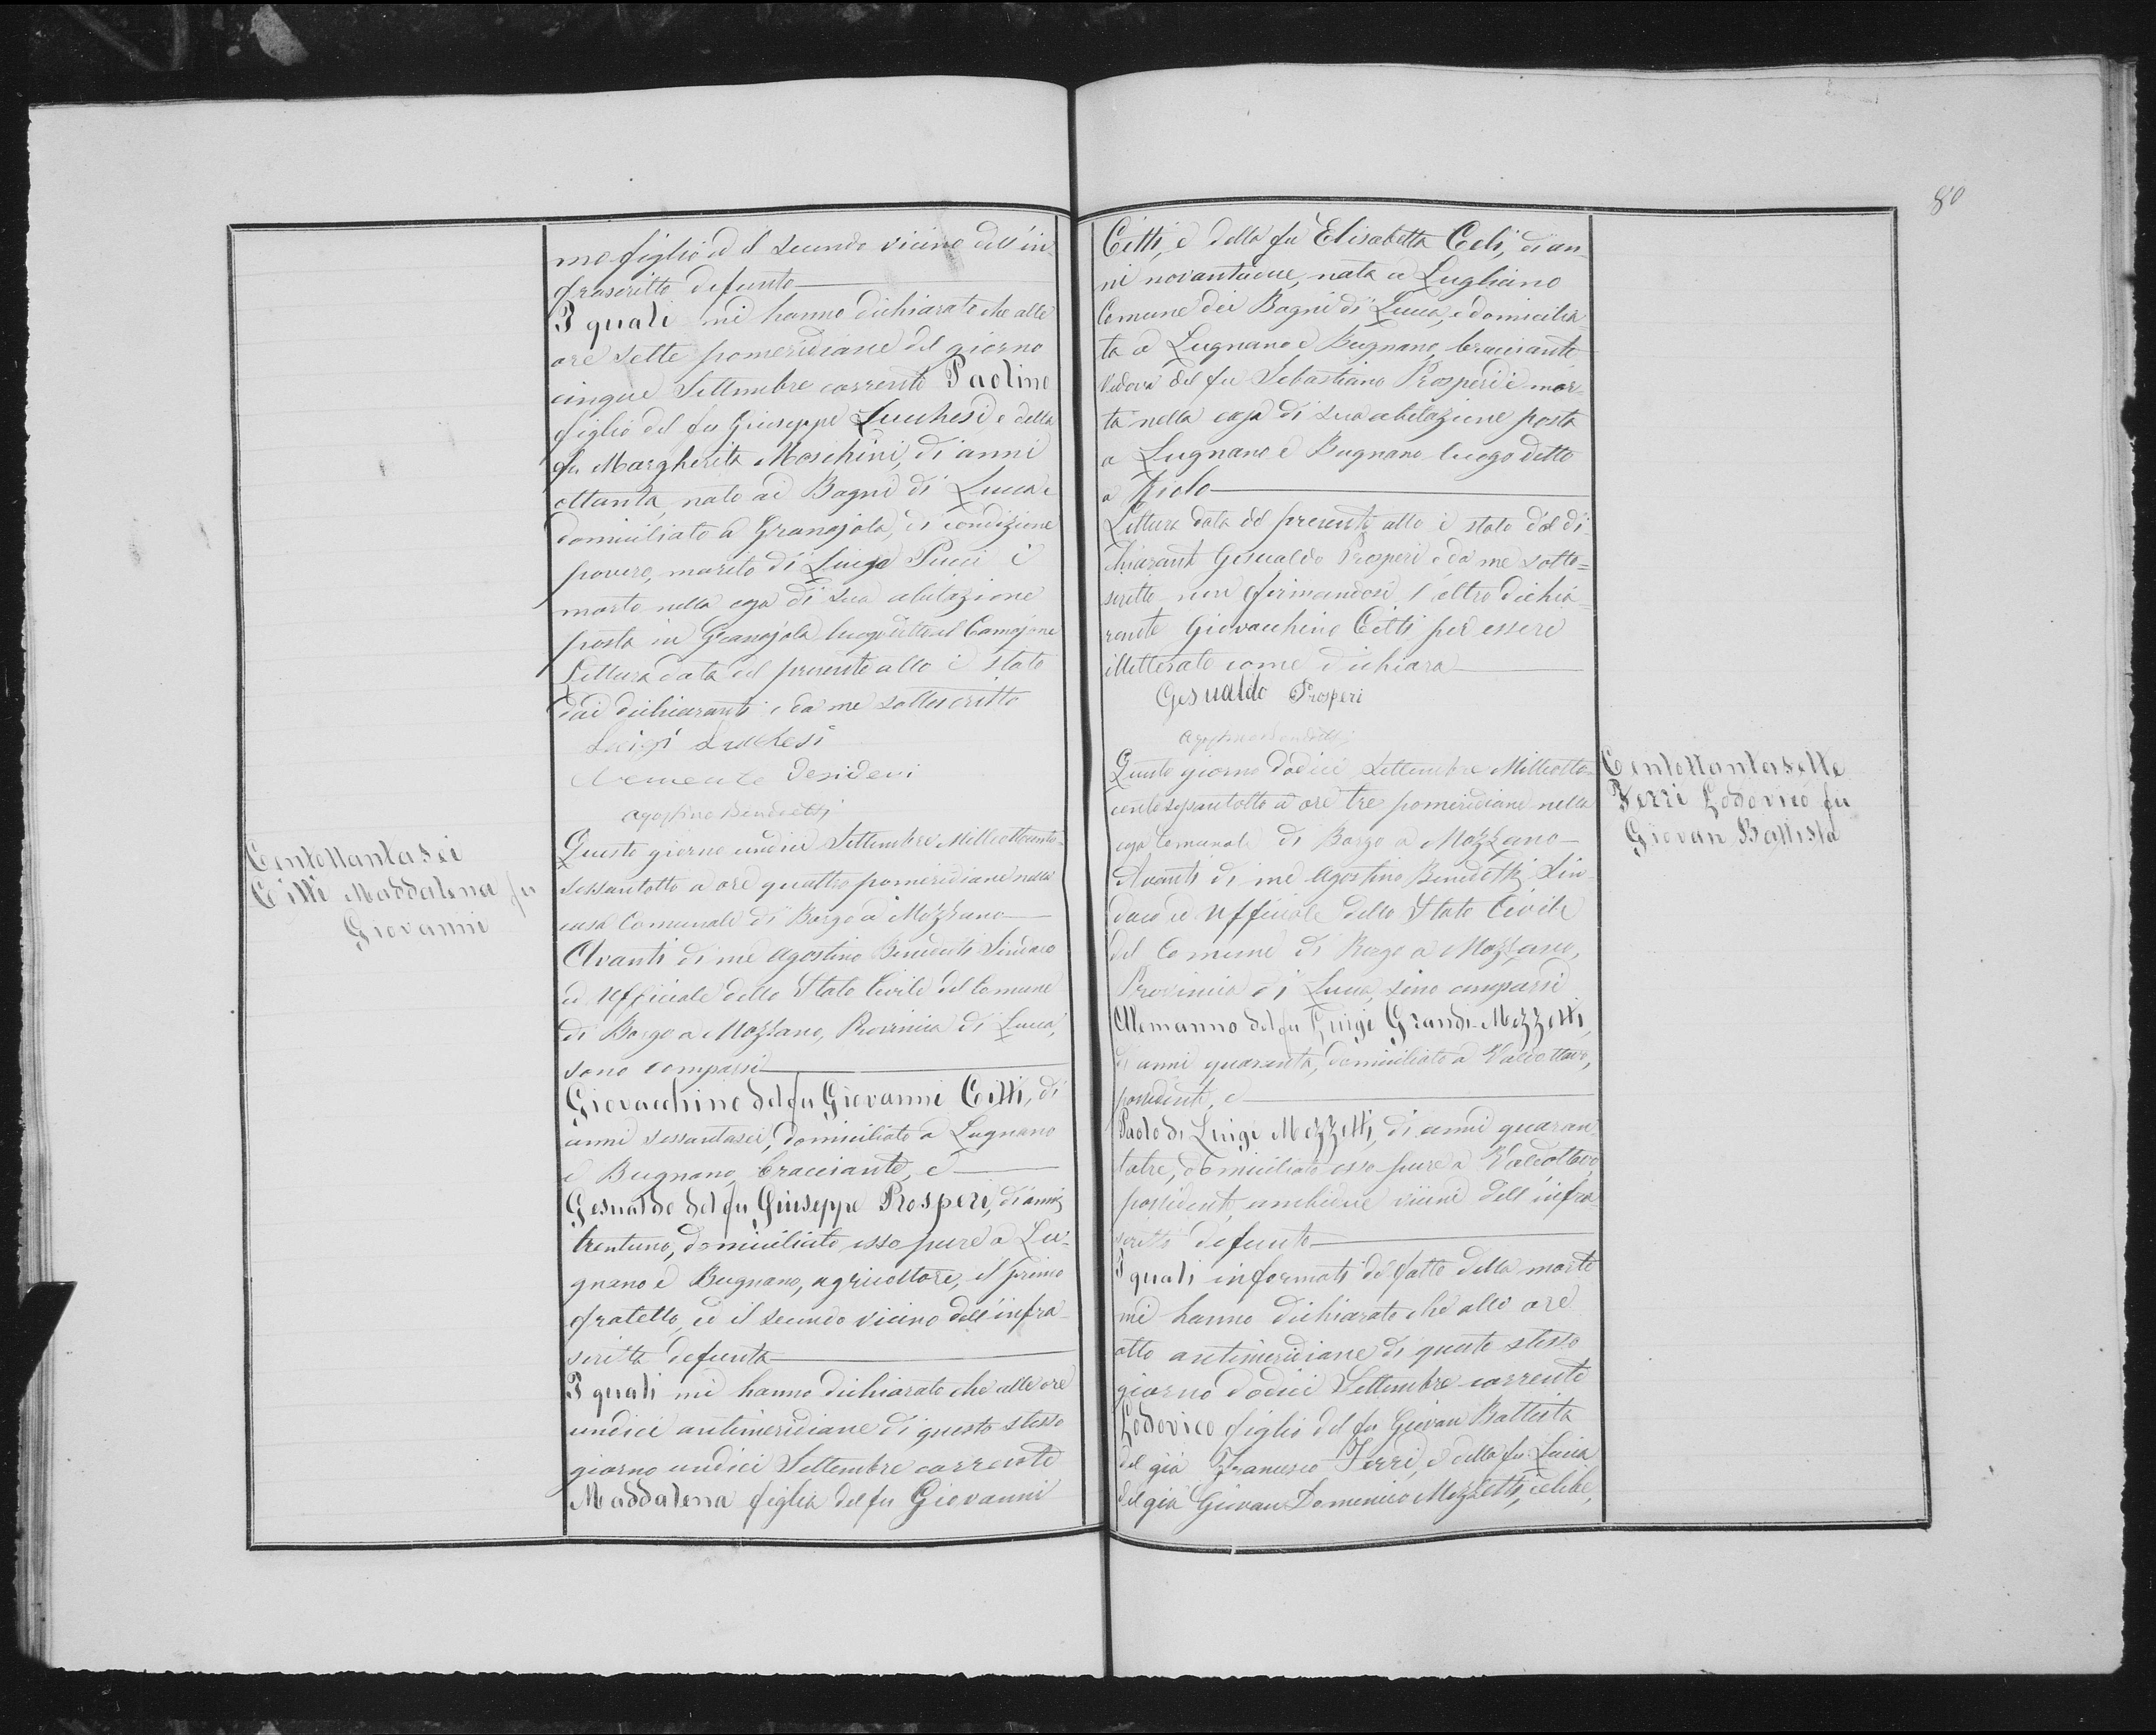 80
mo figlio ed il secondo vicino dell'in-
frascritto defunto
I quali mi hanno dichiarato che alle
ore sette pomeridiane del giorno
cinque Settembre corrente Paolino
figlio del fu Giuseppe Lucchesi e della
fu Margherita Moschini, di anni
ottanta, nato ai Bagni di Lucca e
domiciliato a Granajola, di condizione
povero, marito di Luisa Pucci è
morto nella casa di sua abitazione
posta in Granajola luogo detto al Camajone
Lettura data del presente atto è stato
dai dichiaranti e da me sottoscritto
Luigi Luchesi
Clemente Desideri
Agostino Benedetti
Centottantasei
Citti Maddalena fu
Giovanni
Questo giorno undici Settembre Milleottocento-
sessantotto a ore quattro pomeridiane nella
casa Comunale di Borgo a Mozzano
Avanti di me Agostino Benedetti Sindaco
ed Uffiziale dello Stato Civile del Comune
di Borgo a Mozzano, Provincia di Lucca,
sono comparsi
Giovacchino del fu Giovanni Citti, di
anni sessantasei, domiciliato a Lugnano
e Bugnano, bracciante, e
Gesualdo del fu Giuseppe Prosperi, di anni
trentuno, domiciliato esso pure a Lu-
gnano e Bugnano, agricoltore, il primo
fratello, ed il secondo vicino dell'infra
scritta defunta
I quali mi hanno dichiarato che alle ore
undici antimeridiane di questo stesso
giorno undici Settembre corrente
Maddalena figlia del fu Giovanni
Citti, e della fu Elisabetta Celi, di an-
ni novantadue, nata a Lugliano
Comune dei Bagni di Lucca, e domicilia-
ta a Lugnano e Bugnano, bracciante
Vedova del fu Sebastiano Prosperi è mor-
ta nella casa di sua abitazione posta
a Lugnano e Bugnano luogo detto
a Riolo
Lettura data del presente atto è stato dal di-
chiarante Gesualdo Prosperi e da me sotto=
scritto non firmandosi l'altro dichia-
rante Giovacchino Citti per essere
illetterato come dichiara
Gesualdo Prosperi
Agostino Benedetti
Centottantasette
Ferri Lodovico fu
Giovan Battista
Questo giorno dodici Settembre Milleotto-
centosessantotto a ore tre pomeridiane nella
casa Comunale di Borgo a Mozzano
Avanti di me Agostino Benedetti Sin-
daco ed Uffiziale dello Stato Civile
del Comune di Borgo a Mozzano,
Provincia di Lucca, sono comparsi
Alemanno del fu Luigi Grandi-Mozzetti,
di anni quaranta, domiciliato a Valdottavo,
possidente, e
Paolo di Luigi Mozzetti, di anni quaran
tatre, domiciliato esso pure a Valdottavo
possidente, ambidue vicini dell'infra-
scritto defunto
I quali informati del fatto della morte
mi hanno dichiarato che alle ore
otto antimeridiane di questo stesso
giorno dodici Settembre corrente
Lodovico figlio del fu Giovan Battista
del già Francesco Ferri, e della fu Lucia
del già Giovan Domenico Mozzetti, celibe,